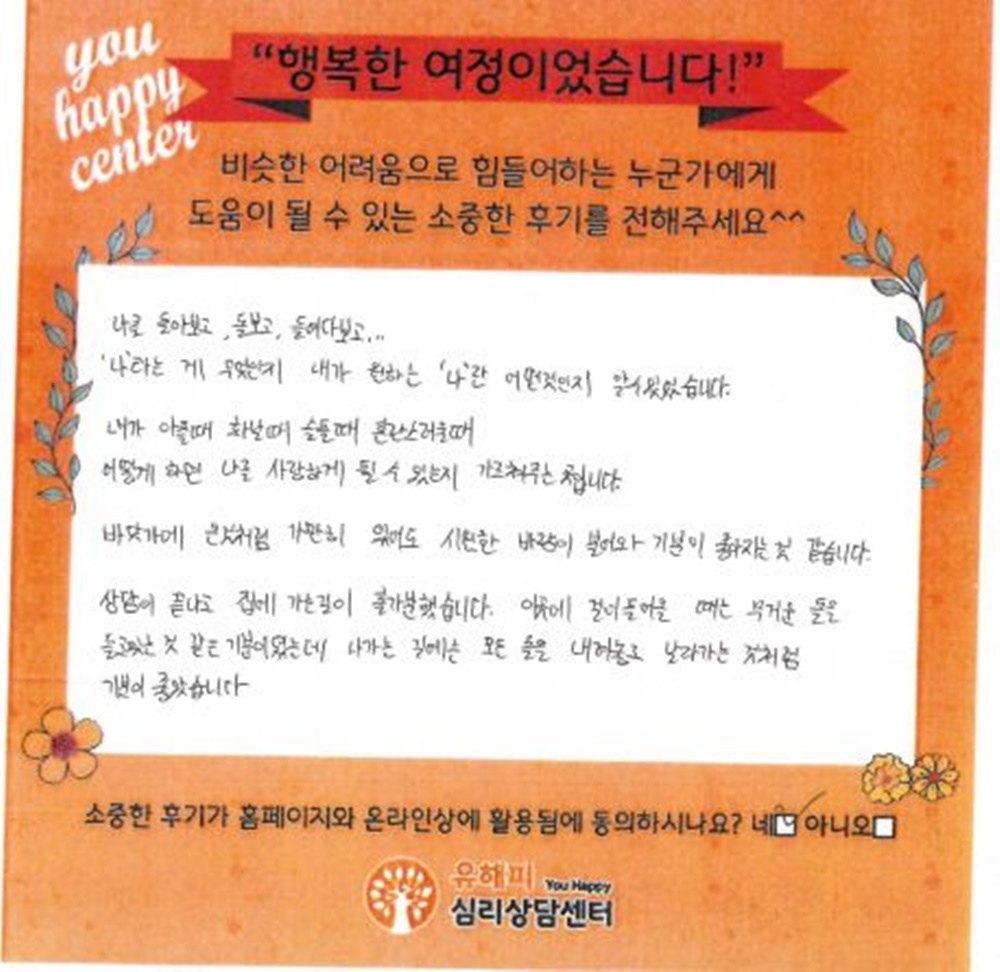 you
happy
center
“행복한 여정이었습니다!”
비슷한 어려움으로 힘들어하는 누군가에게
도움이 될 수 있는 소중한 후기를 전해주세요^^
나를 돌아보고, 돌보고, 들여다보고...
'나'라는 게 무엇인지 내가 원하는 '나'란 어떤것인지 알수있었습니다.
내가 아플때 화날때 슬플때 혼란스러울때
어떻게 하면 나를 사랑하게 될 수 있는지 가르쳐주는 곳입니다.
바닷가에 온것처럼 가만히 있어도 시원한 바람이 불어와 기분이 좋아지는 것 같습니다.
상담이 끝나고 집에 가는길이 홀가분했습니다. 이곳에 걸어들어올 때는 무거운 돌을
들고있는 것 같은 기분이었는데 나가는 길에는 모든 돌을 내려놓고 날아가는 것처럼
기분이 좋았습니다
소중한 후기가 홈페이지와 온라인상에 활용됨에 동의하시나요? 네☑ 아니오□
유해피 You Happy
심리상담센터